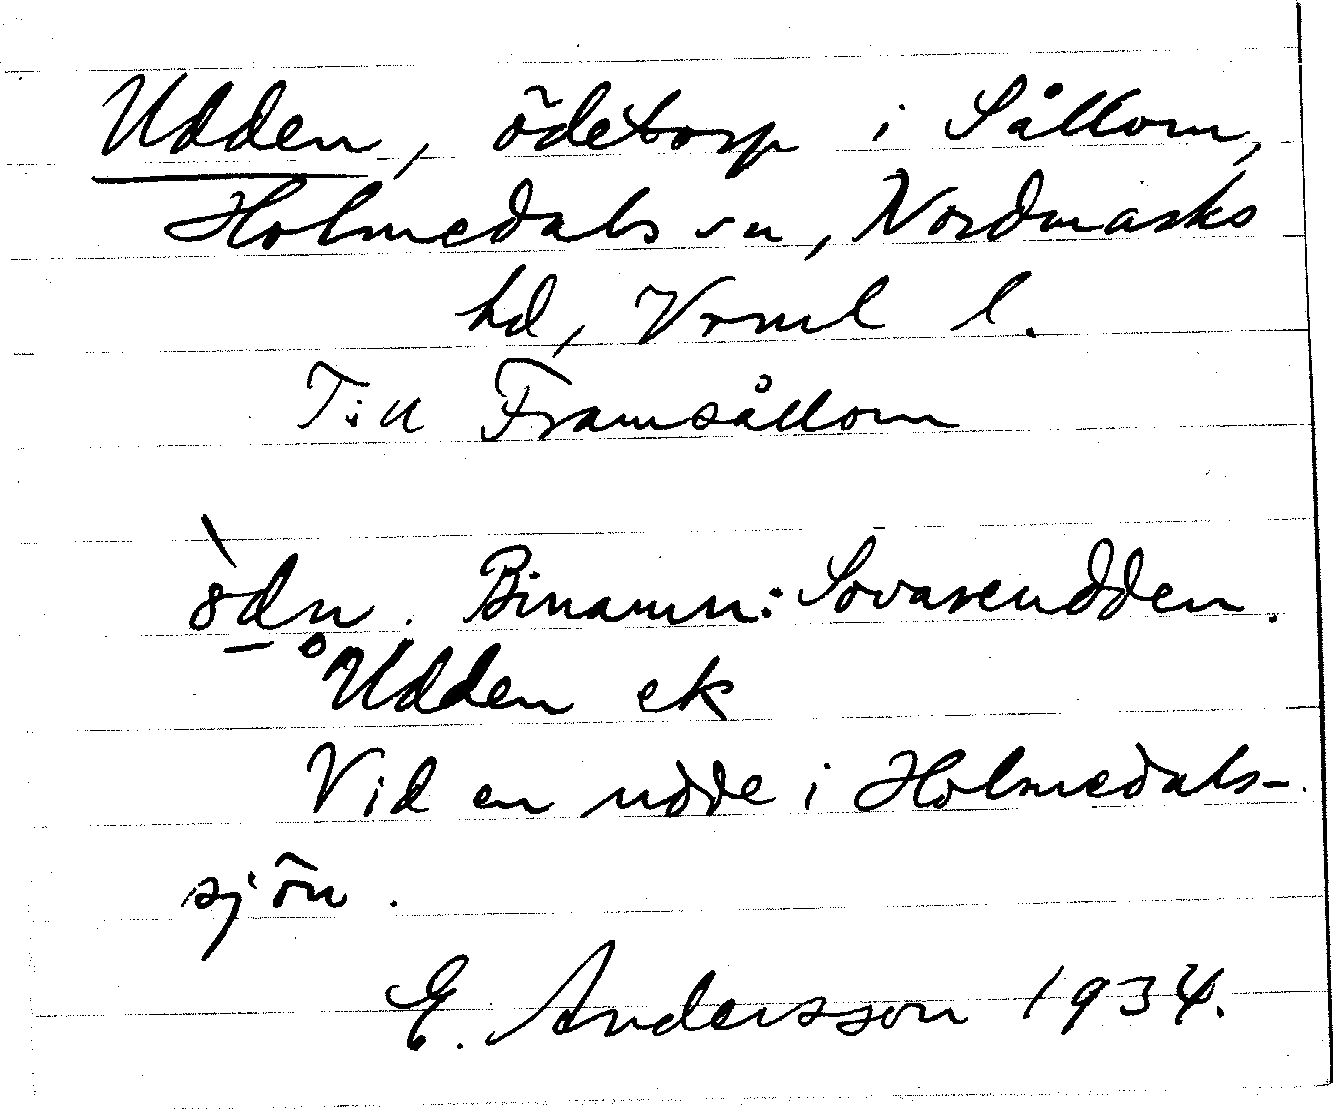 Udden, ödetorp i Sållom,
Holmedals sn, Nordmarks
hd, Vrml l.
Till Framsållom
ö̀dn. Binamn: Sovareudden.
Udden ek
Vid en udde i Holmedals-
sjön.
E. Andersson 1934.